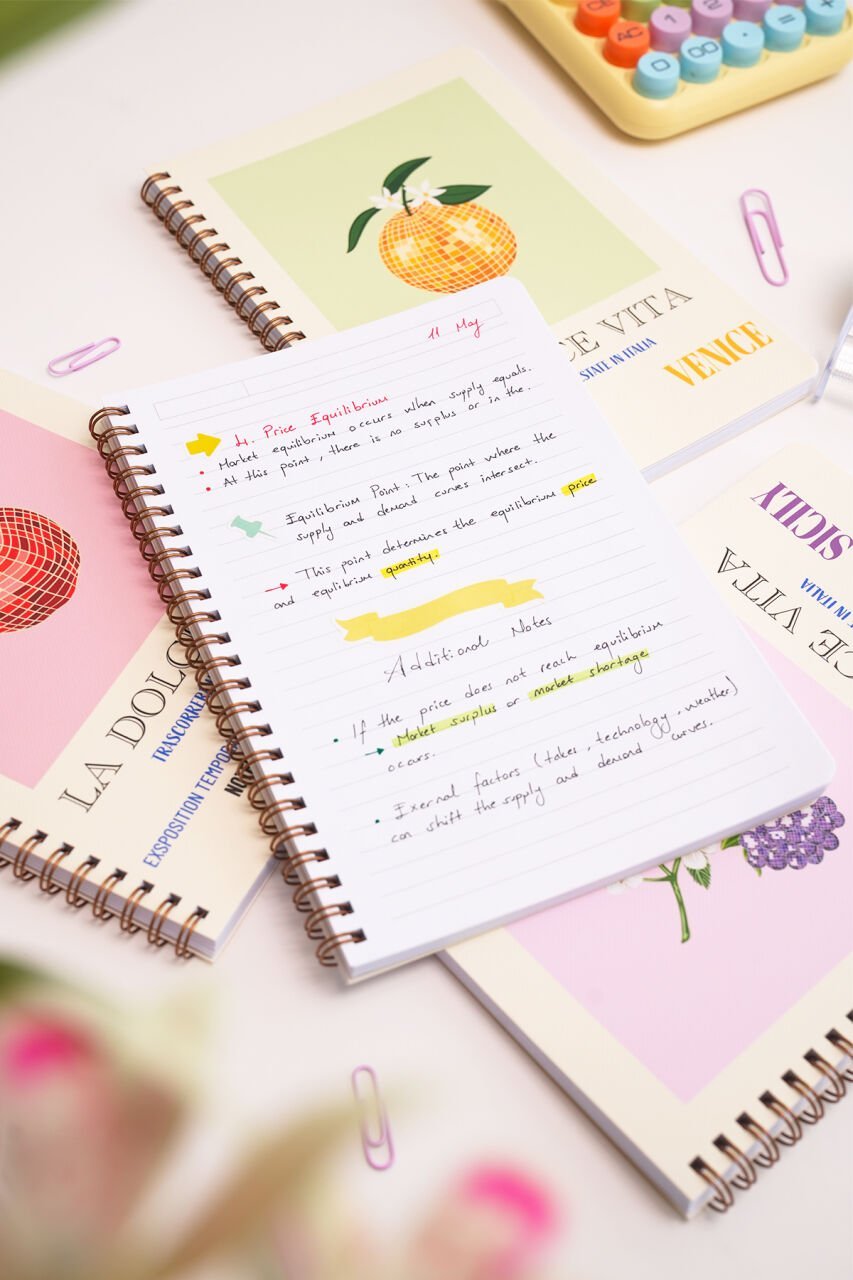 CE AC 1 2
0 00 . = +
CE VITA
STATE IN ITALIA
VENICE
11 May
4. Price Equilibrium
• Market equilibrium occurs when supply equals.
• At this point, there is no surplus or in the.
Equilibrium Point: The point where the
supply and demand curves intersect.
→ This point determines the equilibrium price
and equlibrium quantity.
Additional Notes
• If the price does not reach equilibrium
→ Market surplus or market shortage
occurs.
• Exernal factors (takes, technology, weather)
can shift the supply and demand curves.
LA DOLC
TRASCORRER
EXSPOSITION TEMPO
NOT
SICILY
IN ITALIA
CE VITA